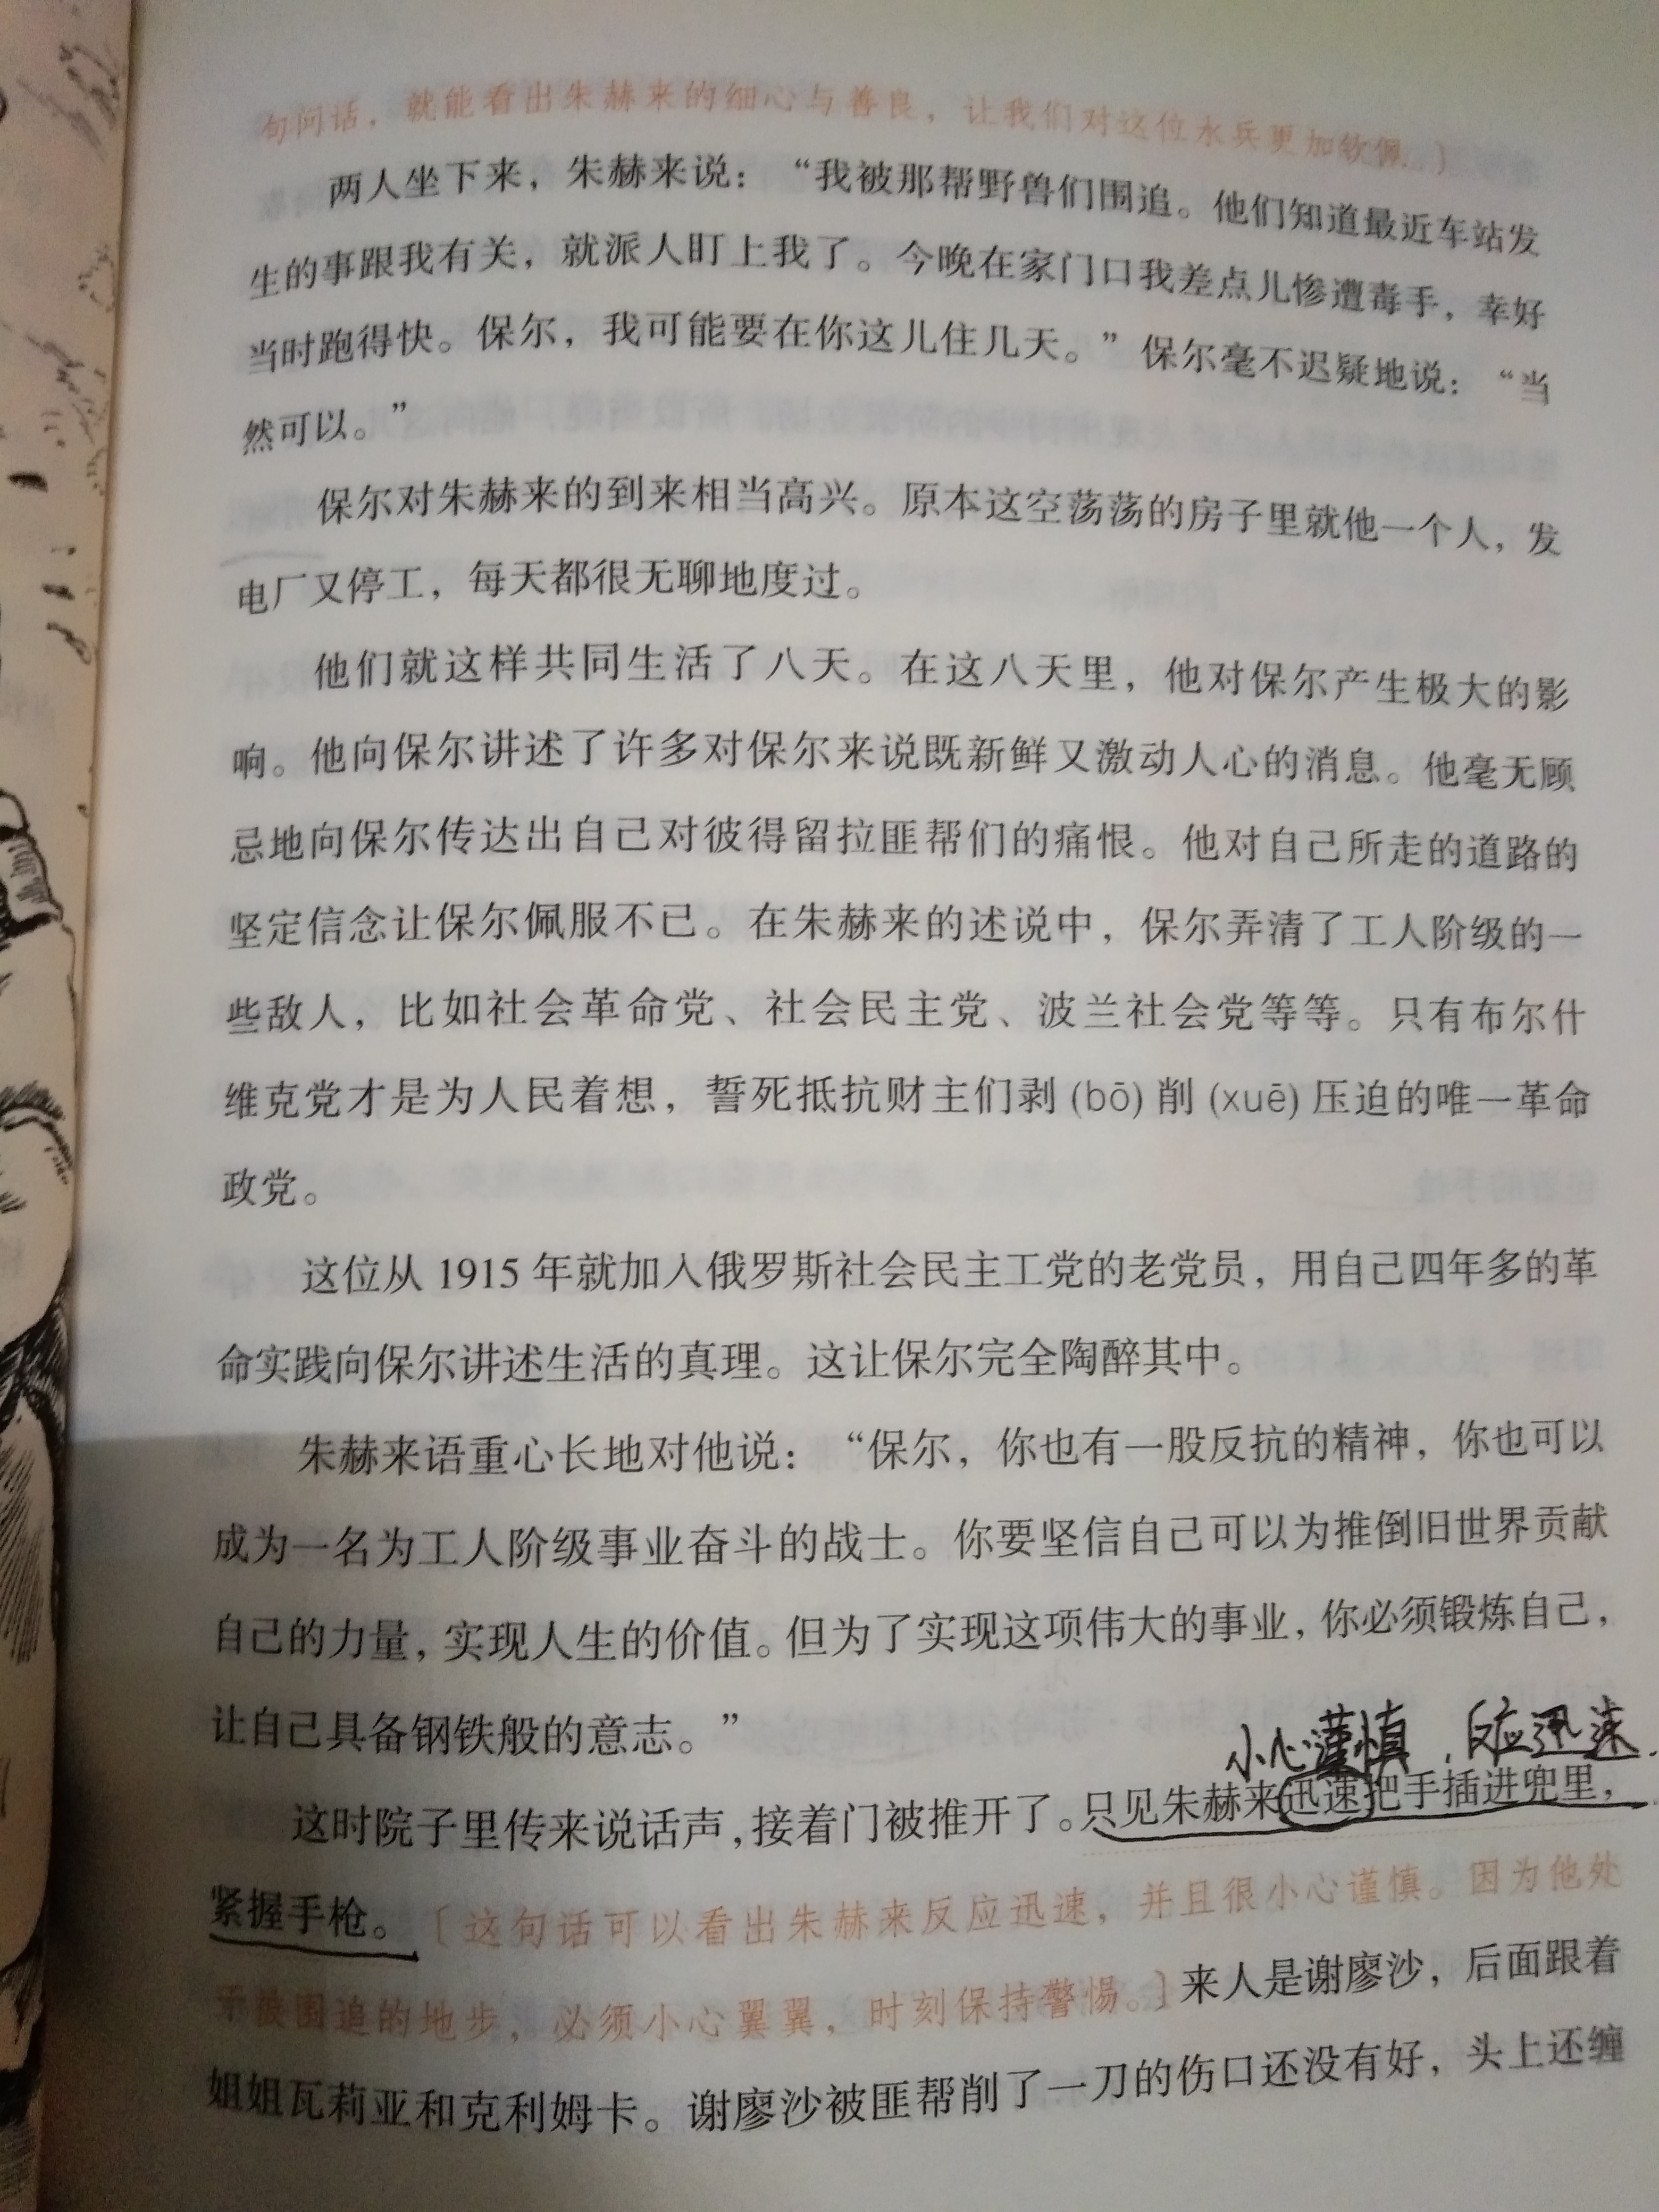 句问话，就能看出朱赫来的细心与善良，让我们对这位水兵更加钦佩。〕
两人坐下来，朱赫来说：“我被那帮野兽们围追。他们知道最近车站发
生的事跟我有关，就派人盯上我了。今晚在家门口我差点儿惨遭毒手，幸好
当时跑得快。保尔，我可能要在你这儿住几天。”保尔毫不迟疑地说：“当
然可以。”
保尔对朱赫来的到来相当高兴。原本这空荡荡的房子里就他一个人，发
电厂又停工，每天都很无聊地度过。
他们就这样共同生活了八天。在这八天里，他对保尔产生极大的影
响。他向保尔讲述了许多对保尔来说既新鲜又激动人心的消息。他毫无顾
忌地向保尔传达出自己对彼得留拉匪帮们的痛恨。他对自己所走的道路的
坚定信念让保尔佩服不已。在朱赫来的述说中，保尔弄清了工人阶级的一
些敌人，比如社会革命党、社会民主党、波兰社会党等等。只有布尔什
维克党才是为人民着想，誓死抵抗财主们剥(bō)削(xuē)压迫的唯一革命
政党。
这位从1915年就加入俄罗斯社会民主工党的老党员，用自己四年多的革
命实践向保尔讲述生活的真理。这让保尔完全陶醉其中。
朱赫来语重心长地对他说：“保尔，你也有一股反抗的精神，你也可以
成为一名为工人阶级事业奋斗的战士。你要坚信自己可以为推倒旧世界贡献
自己的力量，实现人生的价值。但为了实现这项伟大的事业，你必须锻炼自己，
让自己具备钢铁般的意志。”
小心谨慎，反应迅速.
这时院子里传来说话声，接着门被推开了。只见朱赫来迅速把手插进兜里，
紧握手枪。〔这句话可以看出朱赫来反应迅速，并且很小心谨慎。因为他处
于被围追的地步，必须小心翼翼，时刻保持警惕。〕来人是谢廖沙，后面跟着
姐姐瓦莉亚和克利姆卡。谢廖沙被匪帮削了一刀的伤口还没有好，头上还缠